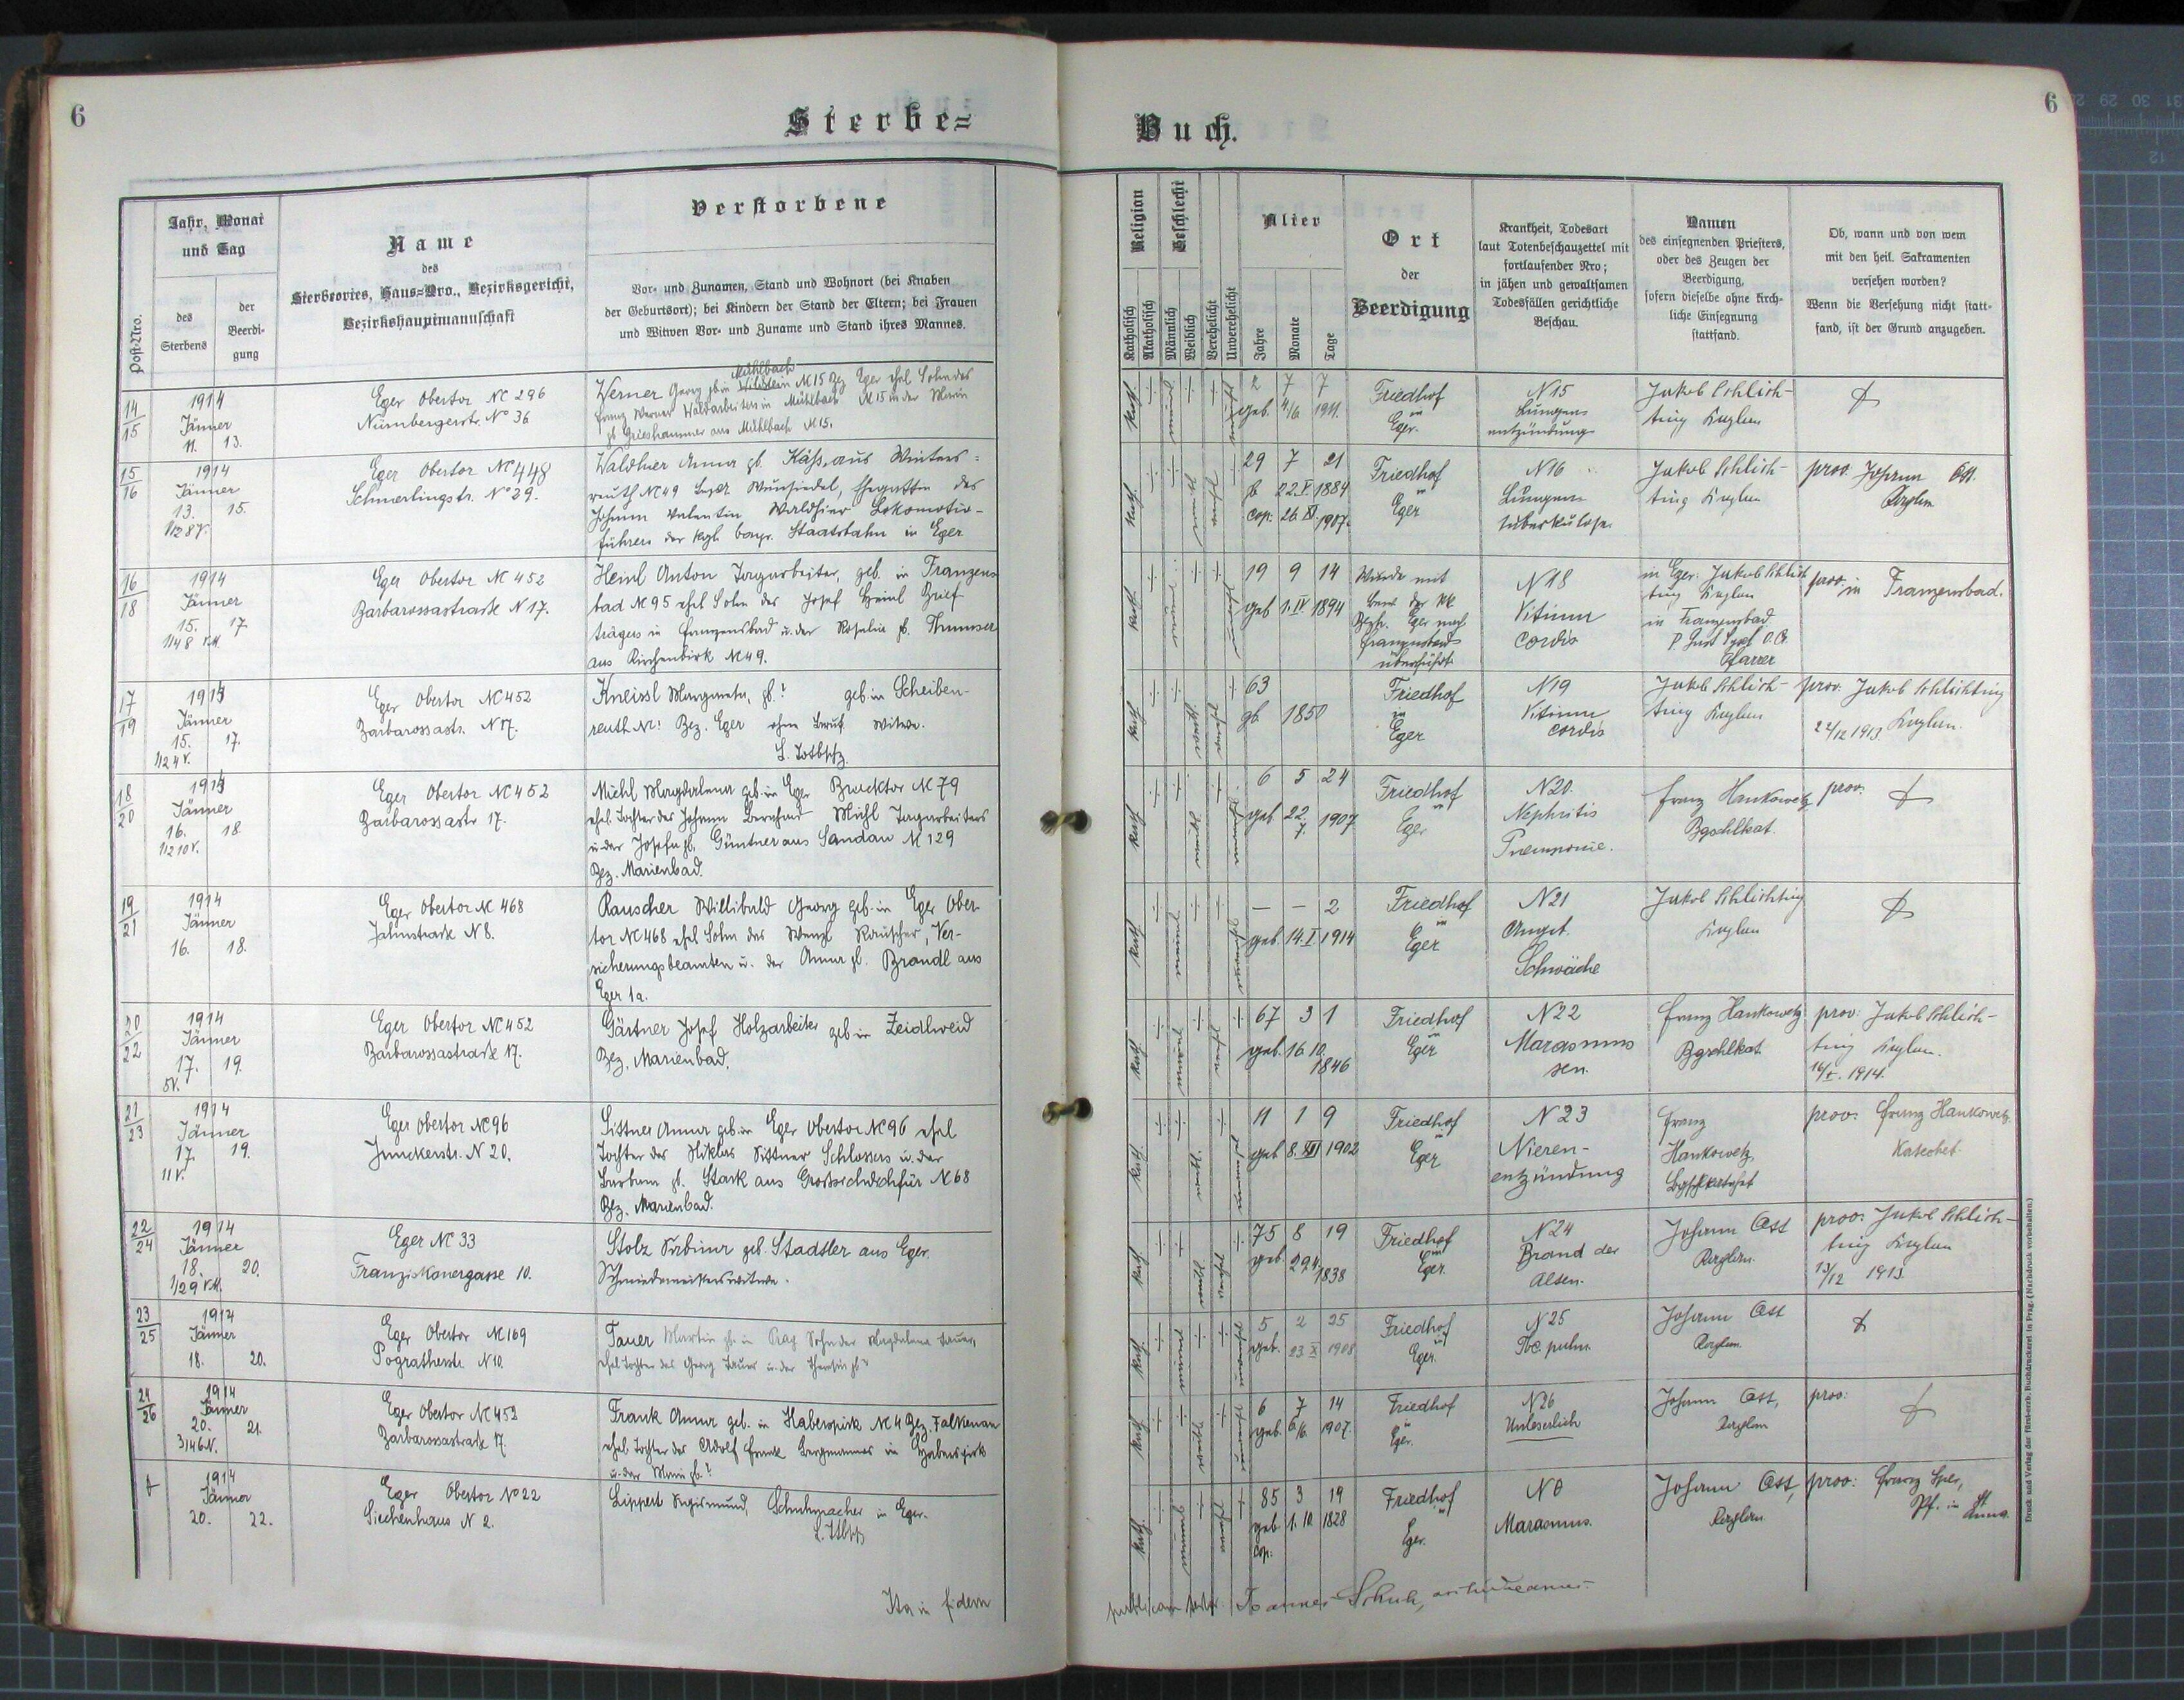 6
Sterbe=
Buch.
6
Post-Nro.
Jahr, Monat
und Tag
des
Sterbens
der
Beerdi-
gung
Name
des
Sterbeortes, Haus-Nro., Bezirksgericht,
Bezirkshauptmannschaft
Verstorbene
Vor- und Zunamen, Stand und Wohnort (bei Knaben
der Geburtsort); bei Kindern der Stand der Eltern; bei Frauen
und Witwen Vor- und Zuname und Stand ihres Mannes.
Religion
Katholisch
Akatholisch
Geschlecht
Männlich
Weiblich
Verehelicht
Unverehelicht
Alter
Jahre
Monate
Tage
Ort
der
Beerdigung
Krankheit, Todesart
laut Totenbeschauzettel mit
fortlaufender Nro;
in jähen und gewaltsamen
Todesfällen gerichtliche
Beschau.
Namen
des einsegnenden Priesters,
oder des Zeugen der
Beerdigung,
sofern dieselbe ohne kirch-
liche Einsegnung
stattfand.
Ob, wann und von wem
mit den heil. Sakramenten
versehen worden?
Wenn die Versehung nicht statt-
fand, ist der Grund anzugeben.
14/15
1914
Jänner
11. 13.
Eger Obertor NC 296
Nürnbergerstr. No 36
Mühlbach
Werner Georg geb. in Wildstein NC 15 Bez Eger ehel Sohn des
Franz Werner Waldarbeiters in Mühlbach NC 15 u der Maria
gb Grieshammer aus Mühlbach NC 15.
Kath
2 7 7
geb. 4/6. 1911.
Friedhof
in
Eger.
N 15
Lungen
entzündung
Jakob Schlich-
ting Kaplan
15/16
1914
Jänner
13. 15.
1/2 8 V.
Eger Obertor NC 448
Schmerlingstr. No 29.
Waldhier Anna gb. Käss, aus Winters-
reuth NC 49 Bez. Wunsiedel, Ehegattin des
Johann Valentin Waldhier Lokomotiv-
führers der kgl. bayr. Staatsbahn in Eger.
Kath.
29 7 21
gb 22. V. 1884
cop. 26. XI 1907.
Friedhof
in
Eger
N 16
Lungen
tuberkulose.
Jakob Schlich-
ting Kaplan
prov. Johann Ott.
Kaplan
16/18
1914
Jänner
15. 17
1/4 8 V.M.
Eger Obertor NC 452
Barbarossastraße N 17.
Heinl Anton Tagarbeiter, geb. in Franzens
bad NC 95 ehel Sohn des Josef Heinl Brief-
trägers in Franzensbad u. der Rosalia gb. Thumser
aus Kirchenbirk NC 49.
Kath
19 9 14
geb 1. IV. 1894
Wurde mit
Bew. der kk
Bezh. Eger nach
Franzensbad
überführt
N 18
Vitium
cordis
in Eger: Jakob Schlich
ting Kaplan
in Franzensbad
Pfarrer
prov. in Franzensbad.
17/19
1914
Jänner
15. 17.
1/2 4 V.
Eger Obertor NC 452
Barbarossastr. N 17.
Kneissl Margareta, gb.? geb in Scheiben-
reuth Nr? Bez. Eger ohne Beruf Witwe.
Kath
63
gb. 1850
Friedhof
in
Eger
N 19
Vitium
cordis
Jakob Schlich-
ting Kaplan
prov. Jakob Schlichting
22/12 1913. Kaplan.
18/20
1914
Jänner
16. 18.
1/2 10 V.
Eger Obertor NC 452
Barbarossastr 17.
Michl Magdalena geb. in Eger Brucktor NC 79
ehel. Tochter des Johann Bernhard Michl Tagarbeiters
u. der Josefa gb. Güntner aus Sandau NC 129
Bez. Marienbad.
Kath
6 5 24
geb 22. 7. 1907
Friedhof
in
Eger
N 20.
Nephritis
Pneumonie.
Franz Hankowetz
Bgschlkat.
prov.
19/21
1914
Jänner
16. 18.
Eger Obertor NC 468
Jahnstraße N 8.
Rauscher Willibald Georg geb. in Eger Ober-
tor NC 468 ehel Sohn des Wenzl Rauscher, Ver-
sicherungsbeamten u. der Anna gb. Brandl aus
Eger 1a.
Kath
— — 2
geb. 14. I 1914
Friedhof
in
Eger
N 21
Angeb.
Schwäche
Jakob Schlichting
Kaplan
20/22
1914
Jänner
17. 19.
5 V.
Eger Obertor NC 452
Barbarossastraße 17.
Gärtner Josef Holzarbeiter geb in Zeidlweid
Bez. Marienbad.
Kath
67 3 1
geb. 16. 10.
1846
Friedhof
in
Eger
N 22
Marasmus
sen.
Franz Hankowetz
Bgschlkat.
prov. Jakob Schlich-
ting Kaplan.
16/I. 1914.
21/23
1914
Jänner
17. 19.
11 V.
Eger Obertor NC 96
Junckerstr. N 20.
Sittner Anna geb in Eger Obertor NC 96 ehel
Tochter des Niklas Sittner Schlossers u. der
Barbara gb. Stark aus Grossichdichfür N 68
Bez. Marienbad.
Kath
11 1 9
geb 8. XII 1902
Friedhof
in
Eger
N 23
Nieren-
entzündung
Franz
Hankowetz
prov. Franz Hankowetz
Katechet.
22/24
1914
Jänner
18. 20.
1/2 9 V.M.
Eger NC 33
Franziskanergasse 10.
Stolz Sabina geb. Stadtler aus Eger.
Schmiedemeisterswitwe.
Kath
75 8 19
geb. 29.4. 1838
Friedhof
in
Eger.
N 24
Brand der
Alten.
Johann Ott
Kaplan.
prov. Jakob Schlich-
ting Kaplan
13/12 1913.
23/25
1914
Jänner
18. 20.
Eger Obertor NC 169
Pogratherstr. N 10.
Tauer Martin gb. in Prag Sohn der Magdalena Tauer,
ehel Tochter des Georg Tauer u. der Theresia gb?
Kath
5 2 25
geb. 23 X 1908
Friedhof
in
Eger.
N 25
Tbc pulm.
Johann Ott
Kaplan.
24/26
1914
Jänner
20. 21.
3/4 6 N.
Eger Obertor NC 452
Barbarossastraße 17.
Frank Anna geb. in Haberspirk NC 4 Bez. Falkenau
ehel Tochter des Adolf Frank Bergmannes in Haberspirk
u. der Marie gb.?
Kath
6 7 14
geb. 6/6. 1907.
Friedhof
in
Eger.
N 26
Unleserlich
Johann Ott,
Kaplan
prov:
1914
Jänner
20. 22.
Eger Obertor No 22
Siechenhaus N 2.
Lippert Sigismund, Schuhmacher in Eger.
Kath.
85 3 19
geb. 1. 10. 1828
cop:
Friedhof
in
Eger.
N 0
Marasmus.
Johann Ott,
Kaplan.
prov: Franz
Pf. in St
Anna.
Ita in fidem
publicam testor. Joannes Schuh, archidecanus.
Druck und Verlag der fürst-erzb. Buchdruckerei in Prag. (Nachdruck vorbehalten.)